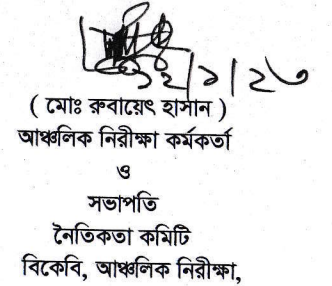 ১২/১/২৩
( মোঃ রুবায়েৎ হাসান )
আঞ্চলিক নিরীক্ষা কর্মকর্তা
ও
সভাপতি
নৈতিকতা কমিটি
বিকেবি, আঞ্চলিক নিরীক্ষা,